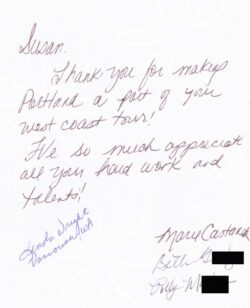 Susan.
Thank you for makings
Portland a part of your
west coast tour!
We so much appreciate
all your hard work and
talents!
Linda Wright
Vancouver, WA
Marie
Beth